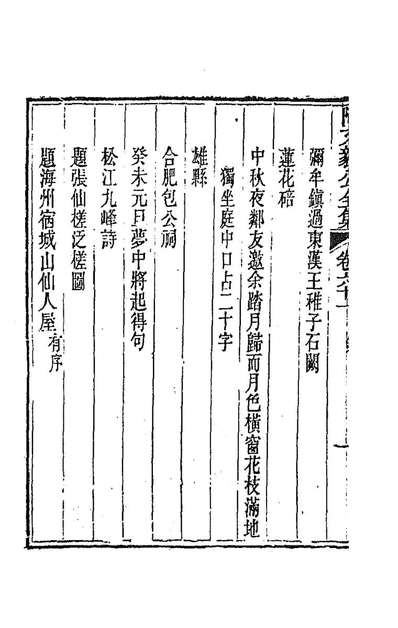 陶文毅公全集 卷六十一
彌牟鎮過東漢王稚子石闕
蓮花碚
中秋夜鄰友邀余踏月歸而月色橫窗花枝滿地
獨坐庭中口占二十字
雄縣
合肥包公祠
癸未元日夢中將起得句
松江九峰詩
題張仙槎泛槎圖
題海州宿城山仙人屋有序